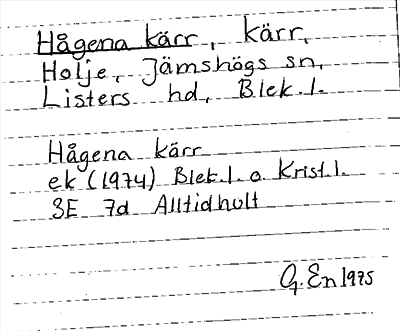 Hågena kärr, kärr,
Holje, Jämshögs sn,
Listers hd, Blek.l.
Hågena kärr
ek (1974) Blek.l. o. Krist.l.
3E 7d Alltidhult
G. En 1975